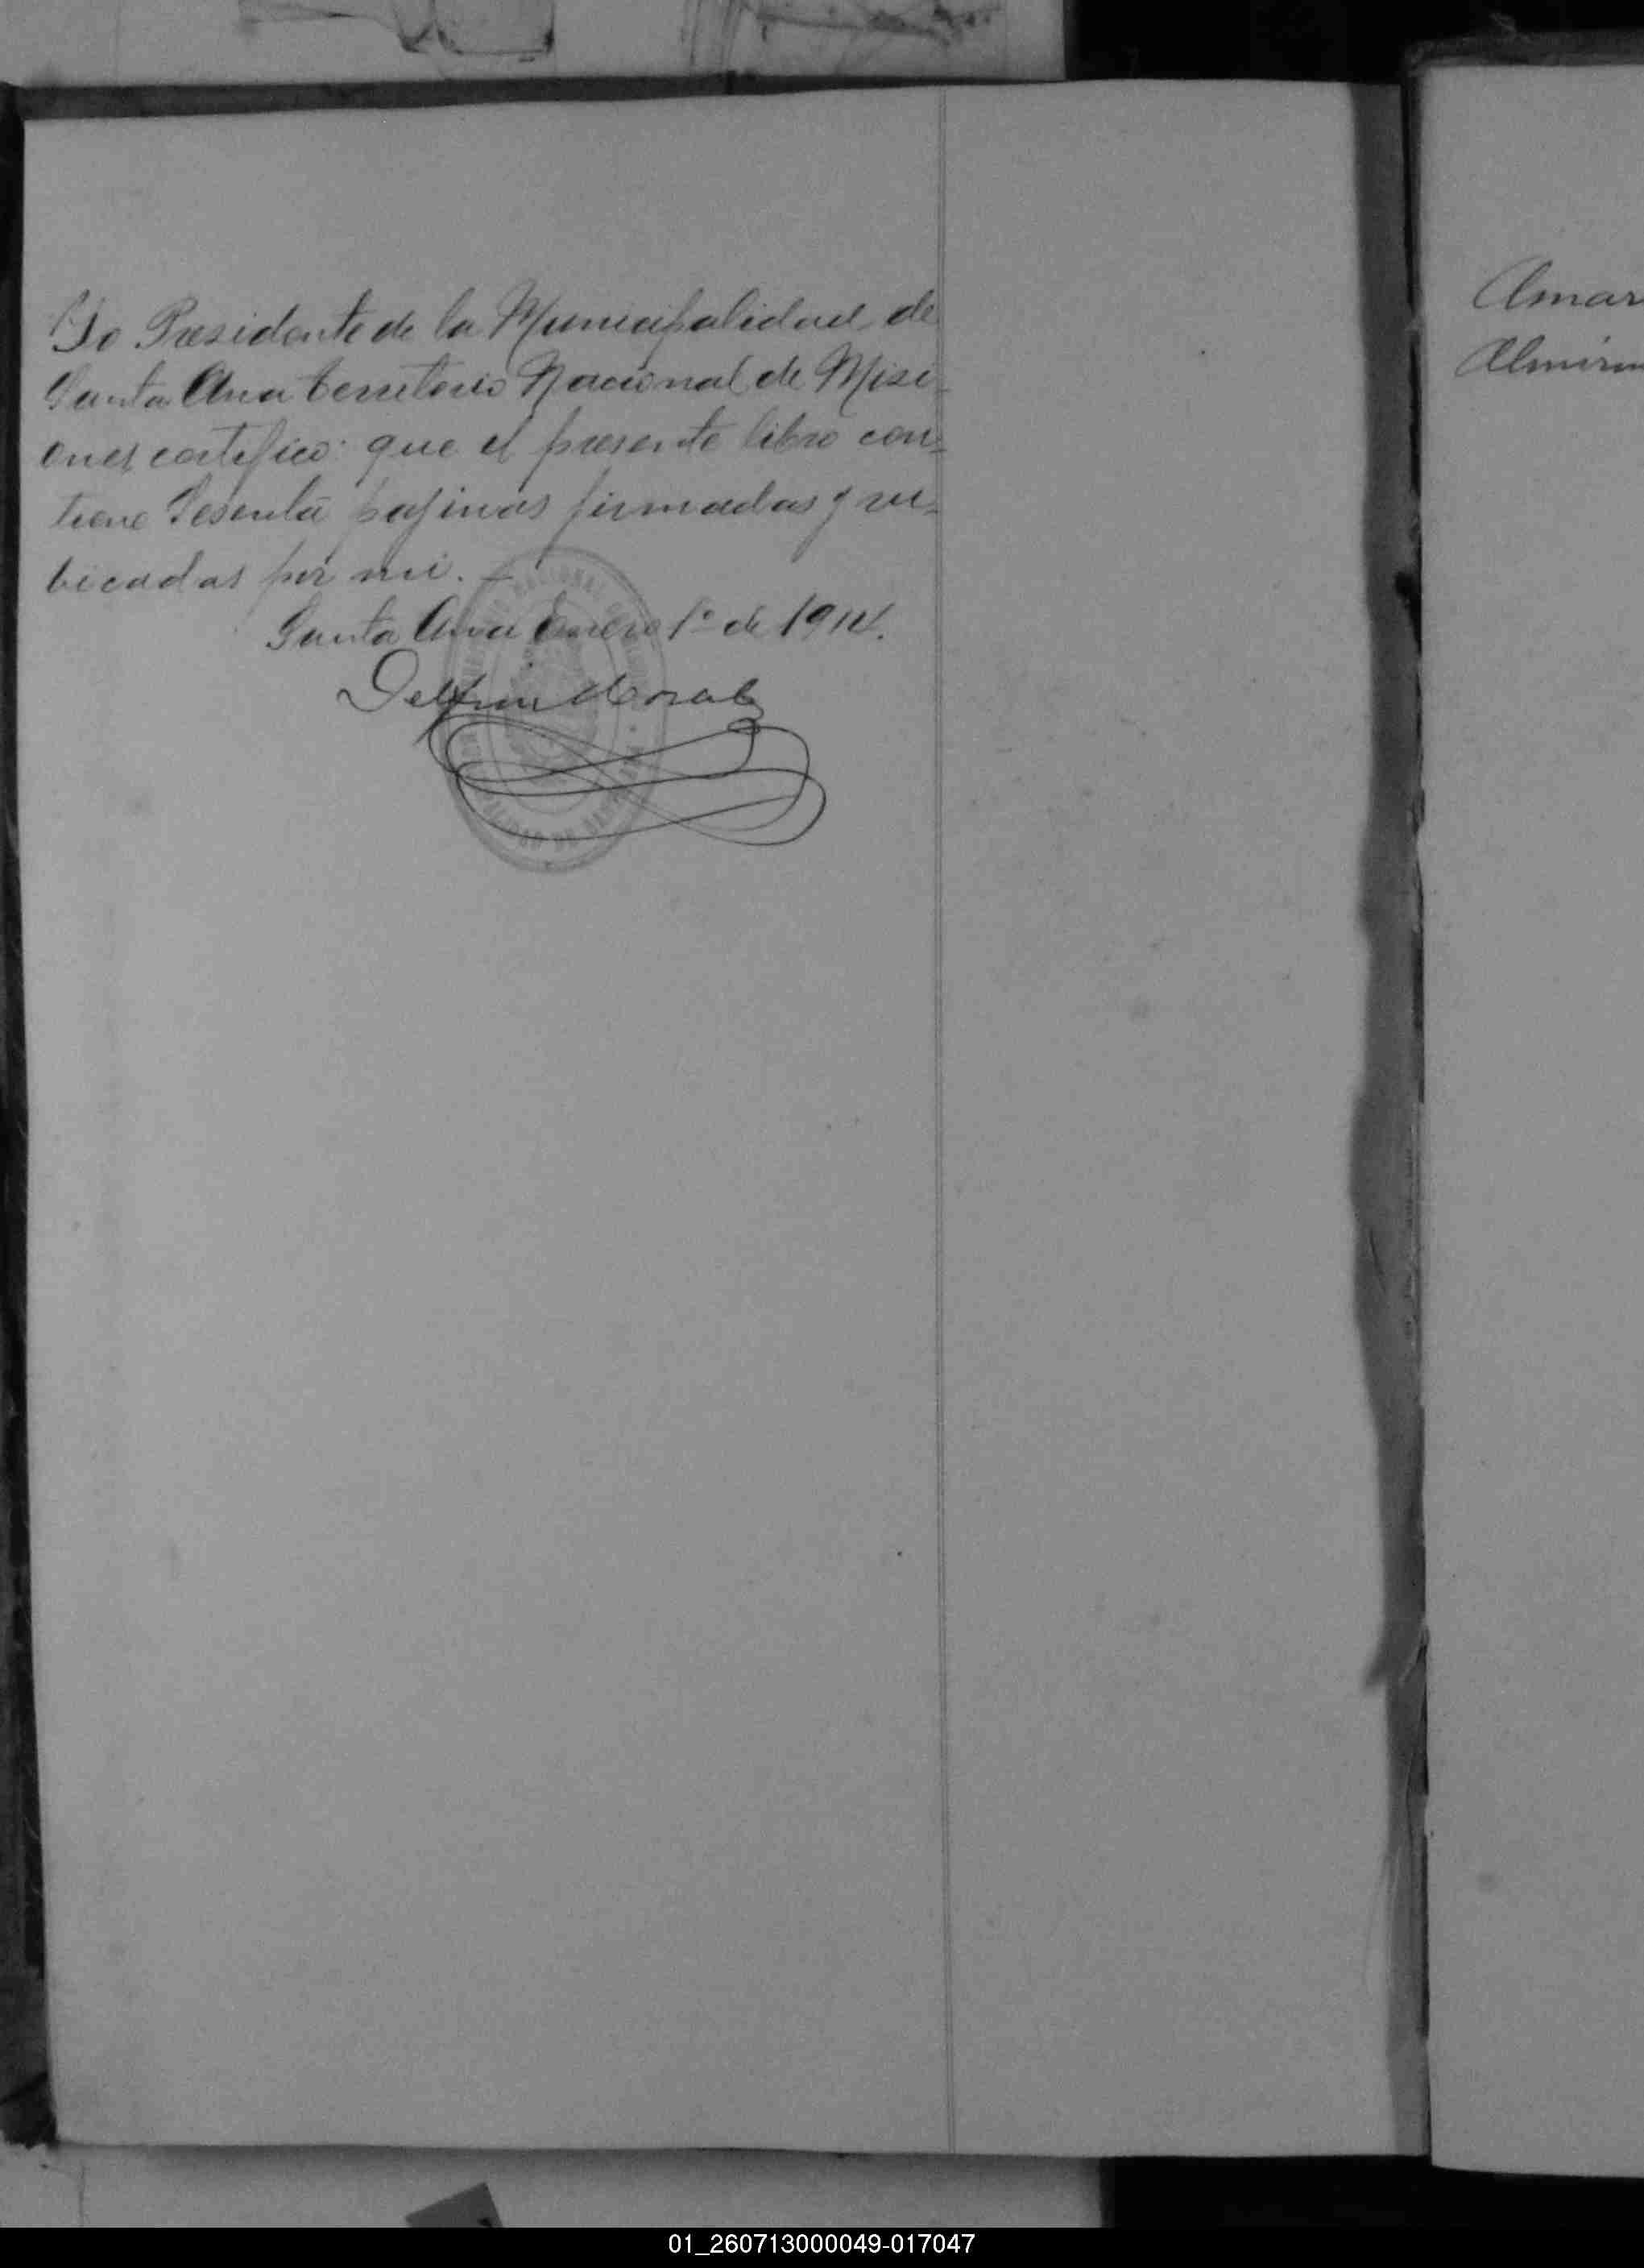 Yo Presidente de la Municipalidad de
Santa Ana territorio Nacional de Misi-
ones certifico: que el presente libro con-
tiene Sesenta pajinas firmadas y ru-
bicadas por mi. —
Santa Ana Enero 1º de 1914.
Delfin
Amar
Almiron
01_260713000049-017047